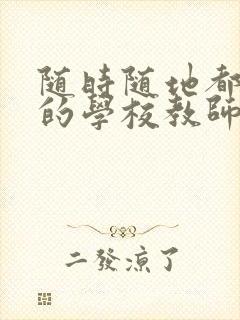 随時随地都
的學校教師
二發涼了